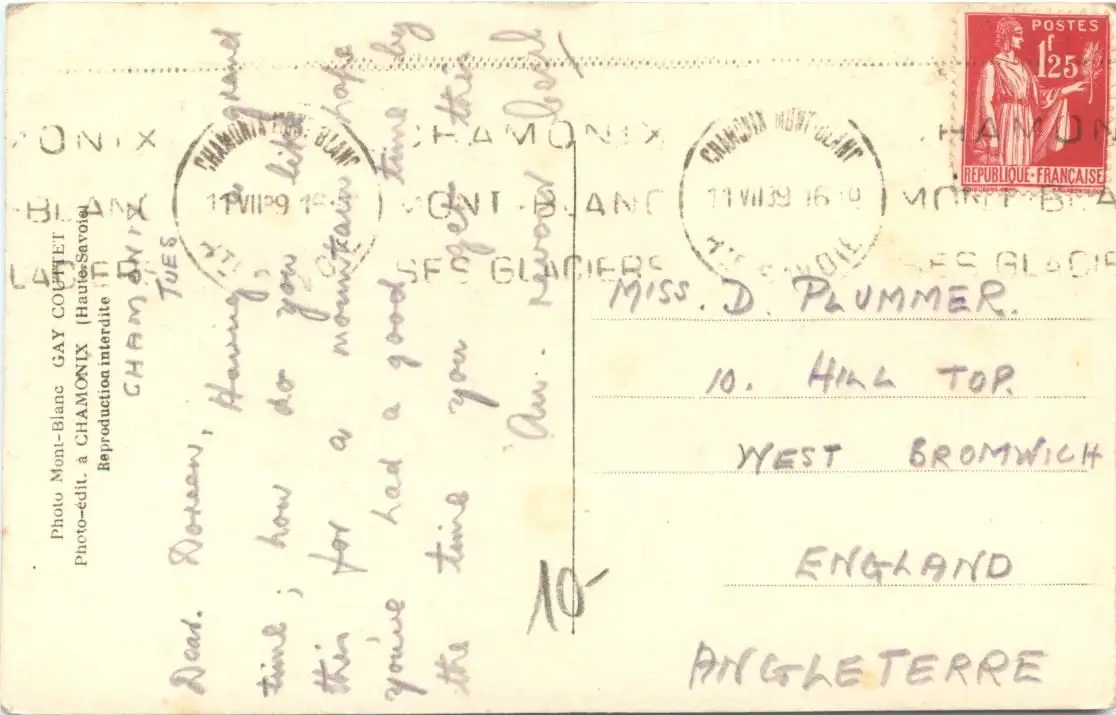 Photo Mont-Blanc GAY COUTTET
Photo-édit. à CHAMONIX (Haute-Savoie)
Reproduction interdite
CHAMONIX
TUES
Dear. Doreen, Having a grand
time; how do you like
this for a mountain hope
you've had a good time by
the time you get this
Au. revoir
POSTES
1f25
REPUBLIQUE·FRANÇAISE
CHAMONIX MONT-BLANC
11 VII 39 16
CHAMONIX
MONT-BLANC
SES GLACIERS
CHAMONIX MONT-BLANC
11 VII 39 16
HTE SAVOIE
CHAMON
MONT-BLA
SES GLACIE
MISS. D. PLUMMER.
10. HILL TOP.
WEST BROMWICH
ENGLAND
ANGLETERRE
10-